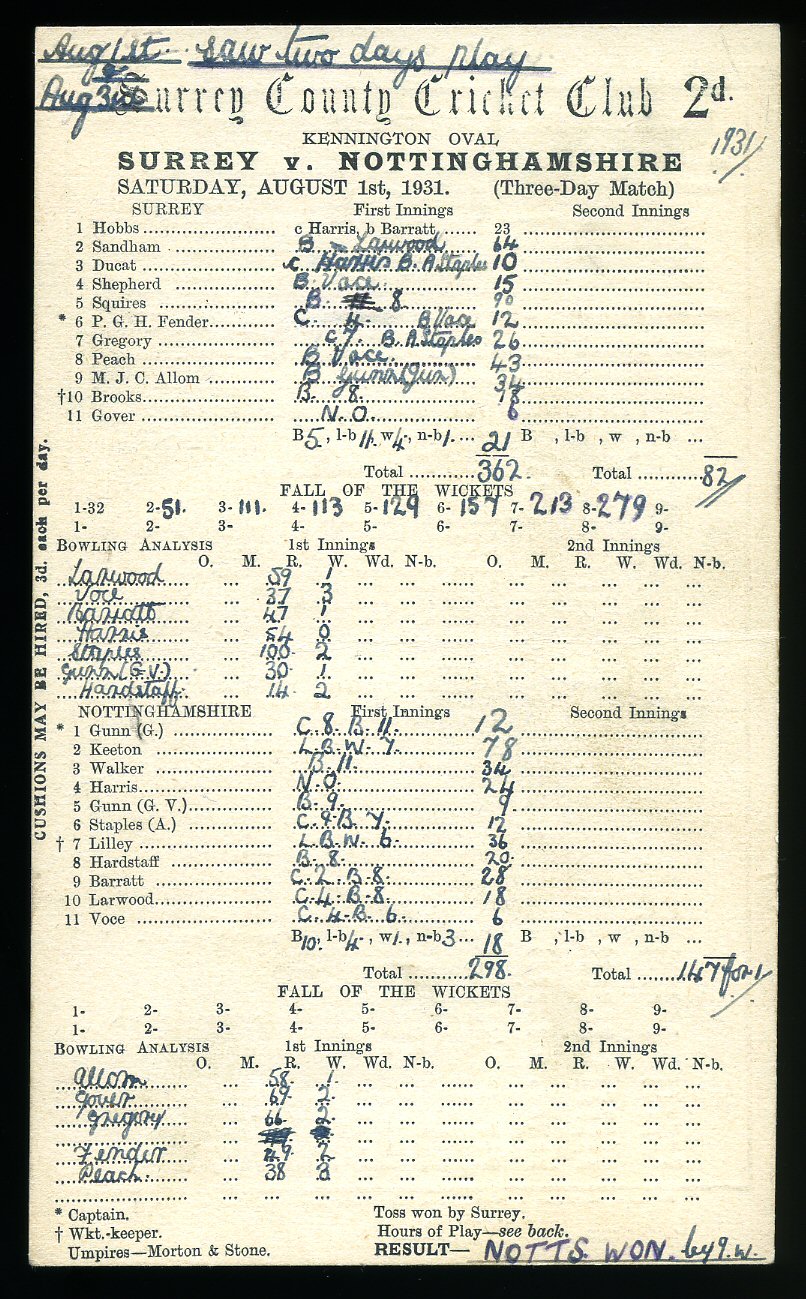 Aug 1st. saw two days play
& Aug 3rd
Surrey County Cricket Club 2d.
KENNINGTON OVAL
1931
SURREY v. NOTTINGHAMSHIRE
SATURDAY, AUGUST 1st, 1931. (Three-Day Match)
SURREY First Innings Second Innings
1 Hobbs c Harris, b Barratt 23
2 Sandham B. Larwood 64
3 Ducat c. Harris B. A Staples 10
4 Shepherd B Voce. 15
5 Squires B. 8 90
* 6 P. G. H. Fender C 4. B Voce 12
7 Gregory c 7. B. A Staples 26
8 Peach B Voce. 43
9 M. J. C. Allom B Gunn (Jun) 34
†10 Brooks B. 8. 18
11 Gover N. O. 6
B 5, l-b 11, w 4, n-b 1. ... 21 B , l-b , w , n-b ...
Total 362. Total 82
FALL OF THE WICKETS
1-32 2-51. 3-111. 4-113 5-129 6-157 7-213 8-279 9-
1- 2- 3- 4- 5- 6- 7- 8- 9-
BOWLING ANALYSIS 1st Innings 2nd Innings
O. M. R. W. Wd. N-b. O. M. R. W. Wd. N-b.
Larwood 59 1
Voce 37 3
Barratt 47 1
Harris 54 0
Staples 100 2
Gunn (G V.) 30 1
Hardstaff 14 2
CUSHIONS MAY BE HIRED, 3d. each per day.
NOTTINGHAMSHIRE First Innings Second Innings
* 1 Gunn (G.) C. 8 B. 11. 12
2 Keeton L.B.W. 7. 78
3 Walker B. 11. 34
4 Harris N. O. 24
5 Gunn (G. V.) B. 9. 9
6 Staples (A.) C. 9 B. 7. 12
† 7 Lilley L.B.W. 6. 36
8 Hardstaff B. 8. 20
9 Barratt C. 2. B. 8. 28
10 Larwood C. 4. B. 8. 18
11 Voce C. 4. B. 6. 6
B 10, l-b 4, w 1, n-b 3 ... 18 B , l-b , w , n-b ...
Total 298. Total 147 for 1
FALL OF THE WICKETS
1- 2- 3- 4- 5- 6- 7- 8- 9-
1- 2- 3- 4- 5- 6- 7- 8- 9-
BOWLING ANALYSIS 1st Innings 2nd Innings
O. M. R. W. Wd. N-b. O. M. R. W. Wd. N-b.
Allom 58 1
Gover 69 2
Gregory 66 2
Fender 49 2
Peach. 38 3
* Captain. Toss won by Surrey.
† Wkt.-keeper. Hours of Play—see back.
Umpires—Morton & Stone. RESULT— NOTTS. WON. by 9. w.